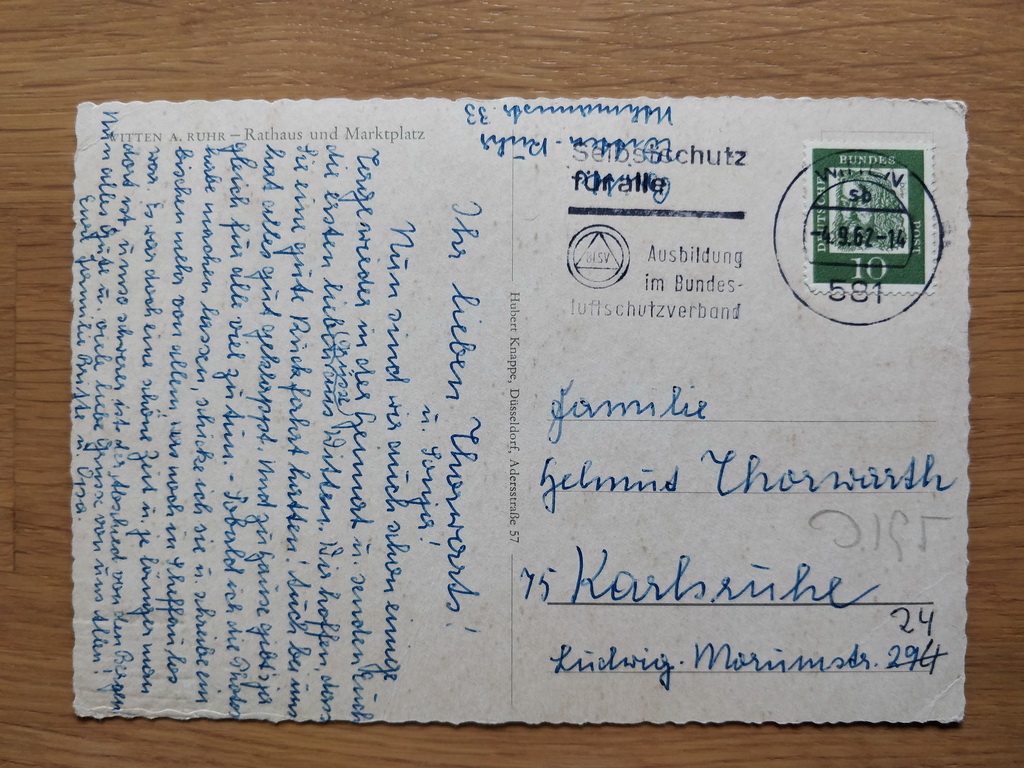 WITTEN A. RUHR – Rathaus und Marktplatz
Ihr lieben Thorwarts!
u. Sonja!
Nun sind wir auch schon einige
Tage wieder in der Heimat u. senden Euch
die ersten lieben Grüsse aus Witten. Wir hoffen, dass
Sie eine gute Rückfahrt hatten! Auch bei uns
hat alles gut geklappt. Und zu Hause gibt's ja
gleich für alle viel zu tun. – Sobald ich die Photos
habe machen lassen, schicke ich sie u. schreibe ein
bischen mehr von allem was noch in
vor. Es war doch eine schöne Zeit u. je länger man
dort ist, umso schwerer ist der Abschied von den Bergen
Nun alles Gute u. viele liebe Grüsse von uns Allen!
Eure Familie u. Opa.
Hubert Knappe, Düsseldorf, Adersstraße 57
Witten-Ruhr
33
Selbstschutz
für alle
BLSV
Ausbildung
im Bundes-
luftschutzverband
WITTEN
sb
-4.9.62-14
581
DEUTSCHE
BUNDES
POST
10
Familie
Helmut Thorwarth
75 Karlsruhe
24
Ludwig-Marumstr. 294